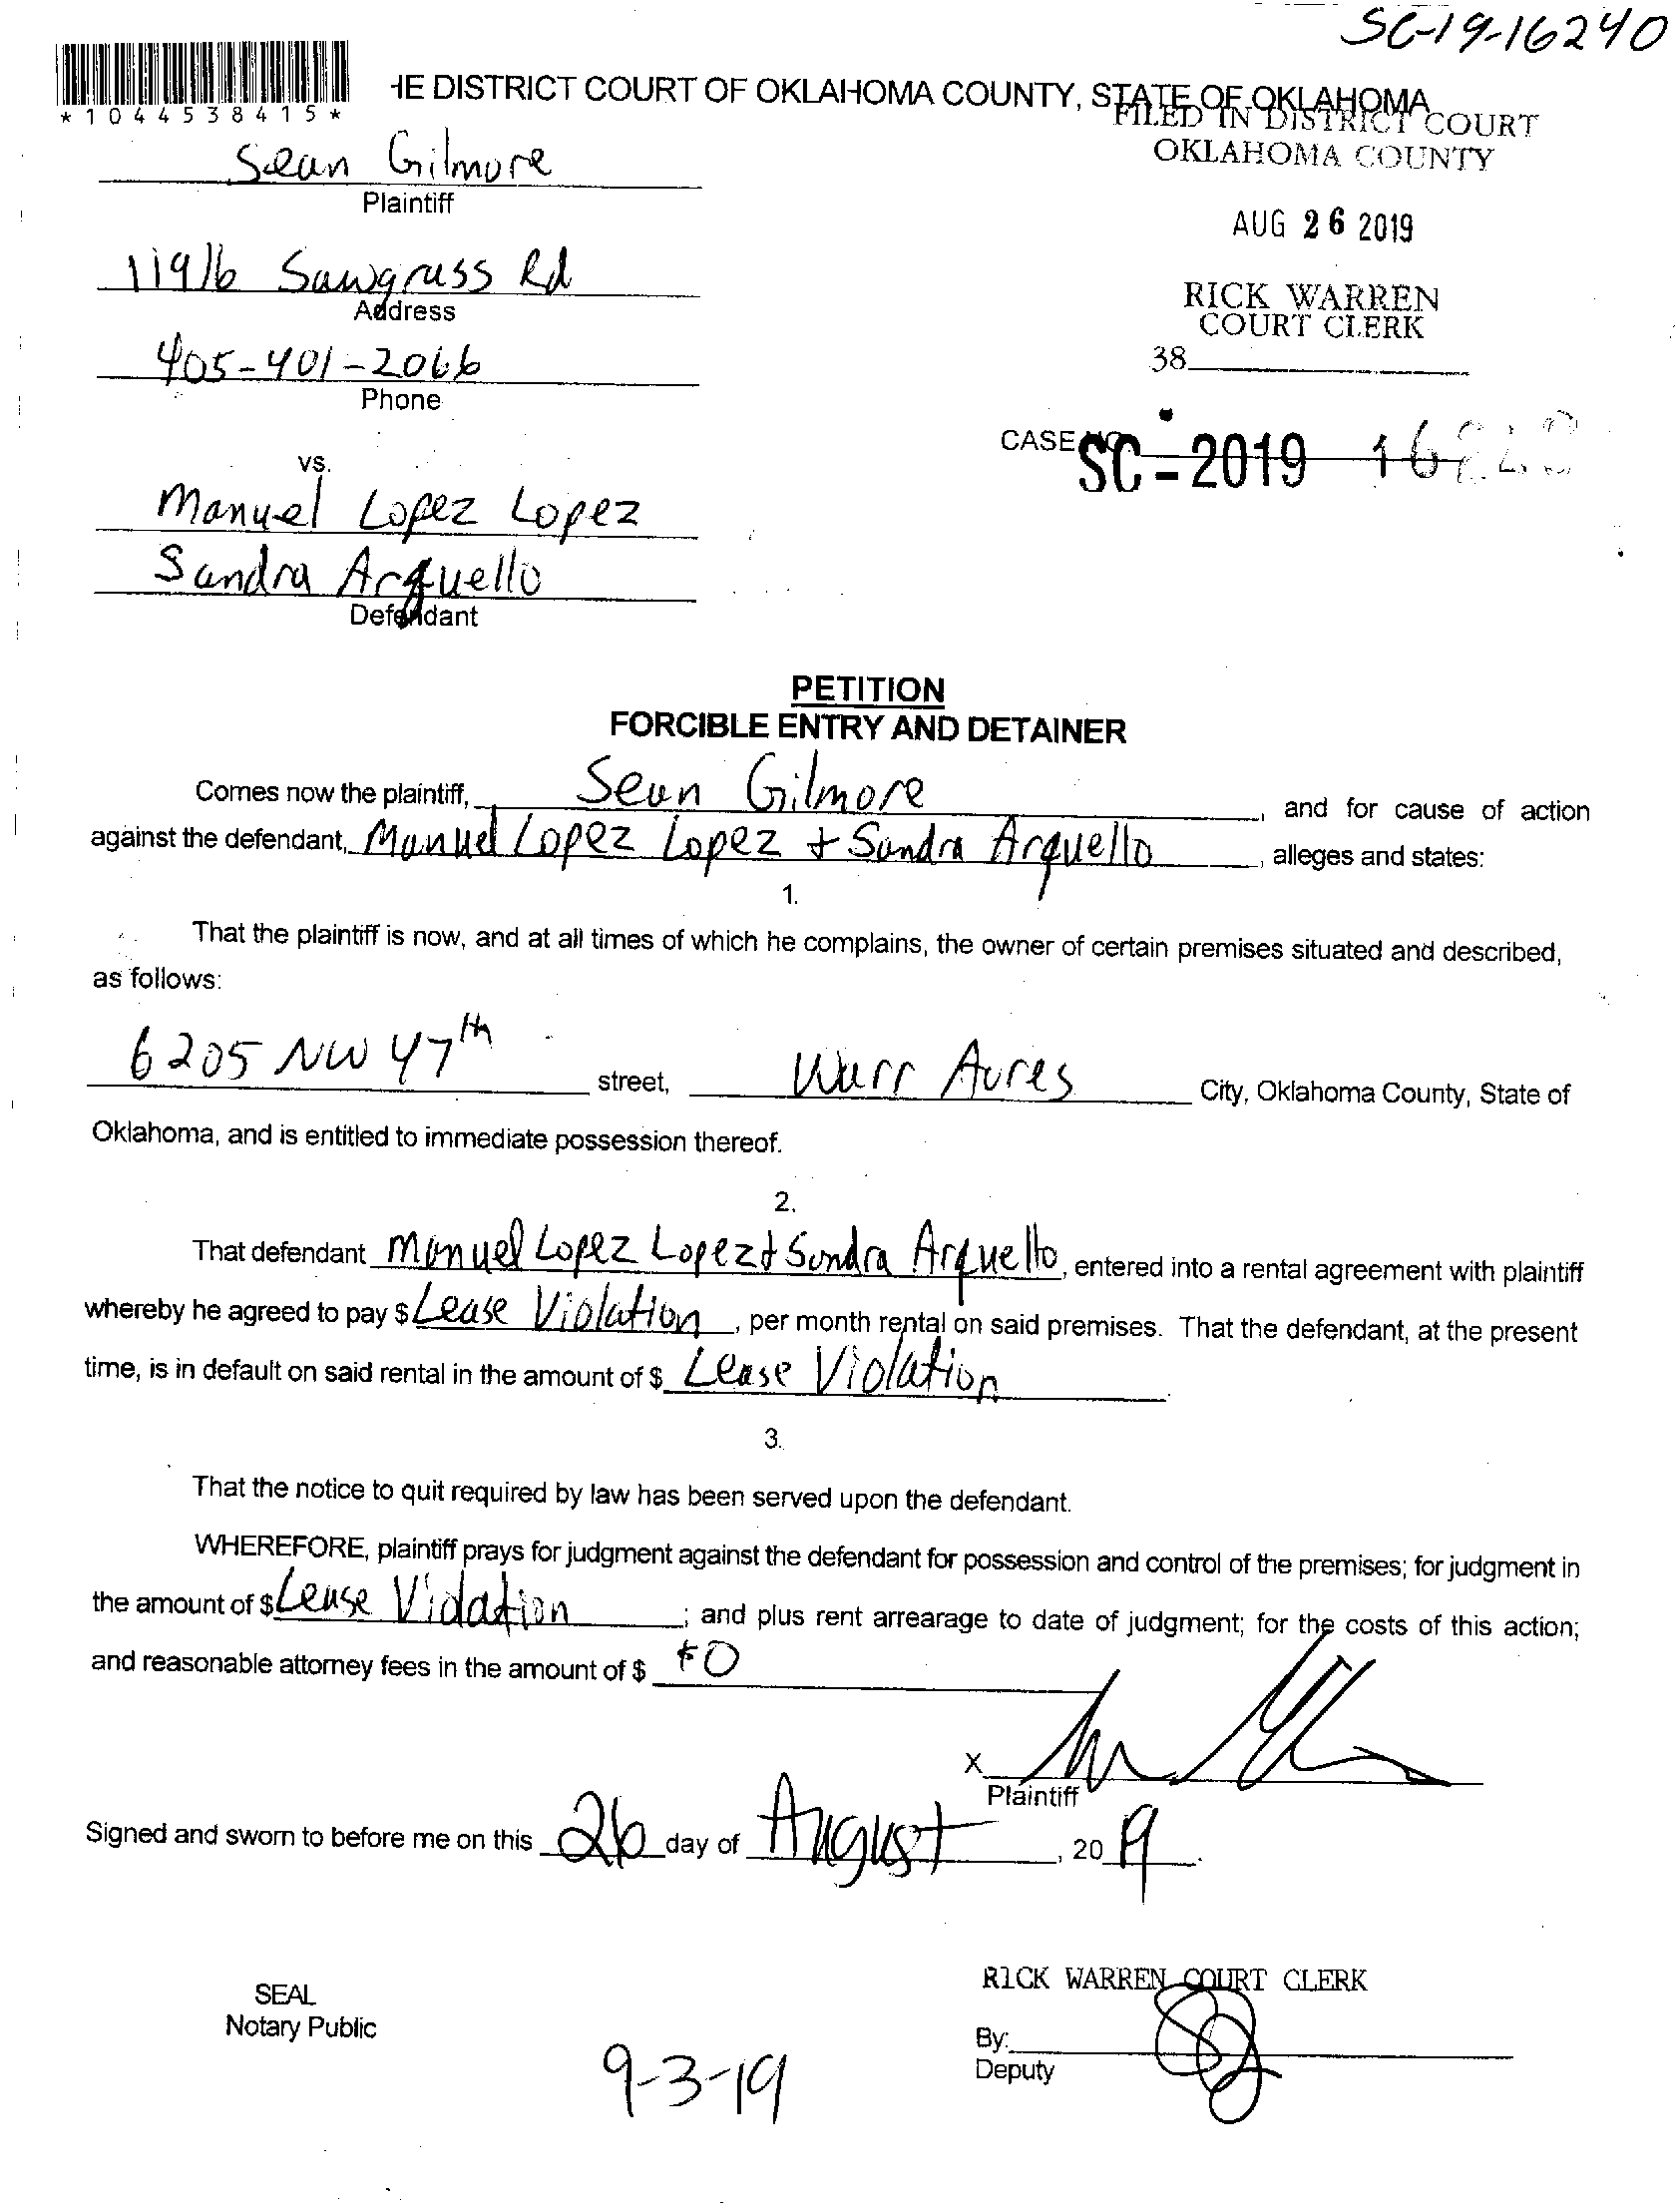 SC-19-16240
*1044538415*
HE DISTRICT COURT OF OKLAHOMA COUNTY, STATE OF OKLAHOMA
FILED IN DISTRICT COURT
OKLAHOMA COUNTY
Sean Gilmore
Plaintiff
AUG 26 2019
11916 Sawgrass Rd
Address
RICK WARREN
COURT CLERK
405-401-2066
Phone
38
CASE
SC-2019 16
vs.
Manuel Lopez Lopez
Sandra Arquello
Defendant
PETITION
FORCIBLE ENTRY AND DETAINER
Comes now the plaintiff, Sean Gilmore, and for cause of action
against the defendant, Manuel Lopez Lopez + Sandra Arquello, alleges and states:
1.
That the plaintiff is now, and at all times of which he complains, the owner of certain premises situated and described,
as follows:
6205 NW 47th street, Warr Acres City, Oklahoma County, State of
Oklahoma, and is entitled to immediate possession thereof.
2.
That defendant Manuel Lopez Lopez + Sandra Arquello, entered into a rental agreement with plaintiff
whereby he agreed to pay $ Lease Violation, per month rental on said premises. That the defendant, at the present
time, is in default on said rental in the amount of $ Lease Violation.
3.
That the notice to quit required by law has been served upon the defendant.
WHEREFORE, plaintiff prays for judgment against the defendant for possession and control of the premises; for judgment in
the amount of $ Lease Violation; and plus rent arrearage to date of judgment; for the costs of this action;
and reasonable attorney fees in the amount of $ $0
X
Plaintiff
Signed and sworn to before me on this 26 day of August, 2019.
RICK WARREN COURT CLERK
SEAL
Notary Public
By:
Deputy
9-3-19